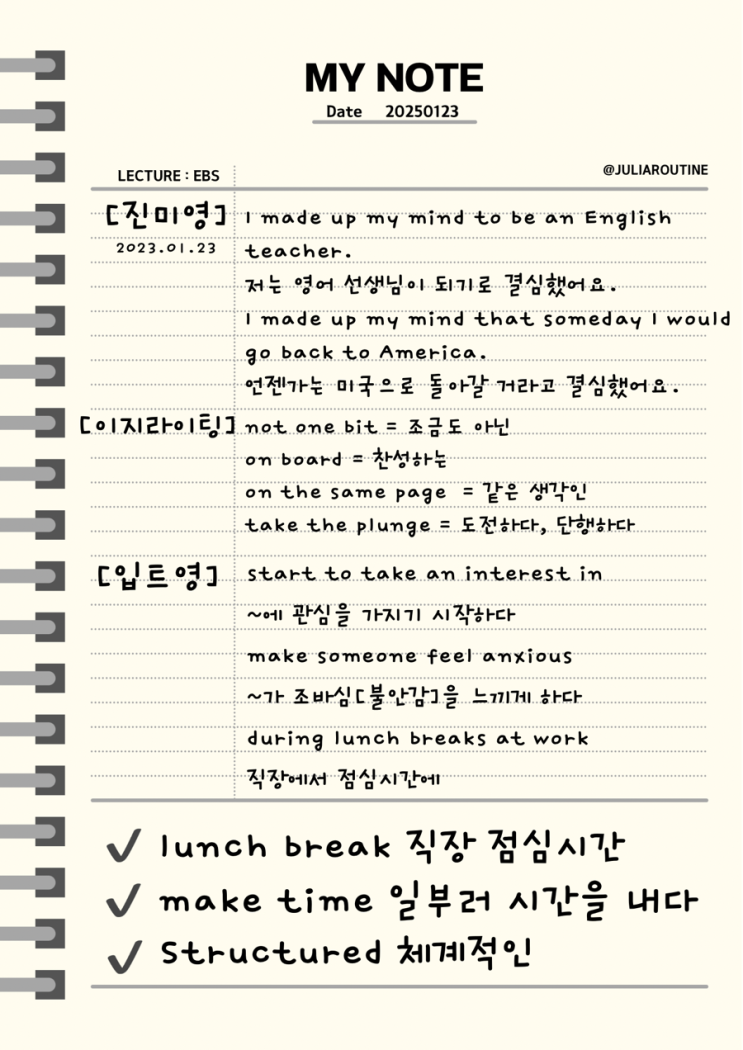 MY NOTE
Date 20250123
LECTURE : EBS
@JULIAROUTINE
[진미영]
2023.01.23
I made up my mind to be an English
teacher.
저는 영어 선생님이 되기로 결심했어요.
I made up my mind that someday I would
go back to America.
언젠가는 미국으로 돌아갈 거라고 결심했어요.
[이지라이팅]
not one bit = 조금도 아닌
on board = 찬성하는
on the same page = 같은 생각인
take the plunge = 도전하다, 단행하다
[입트영]
start to take an interest in
~에 관심을 가지기 시작하다
make someone feel anxious
~가 조바심[불안감]을 느끼게 하다
during lunch breaks at work
직장에서 점심시간에
✓ lunch break 직장 점심시간
✓ make time 일부러 시간을 내다
✓ Structured 체계적인